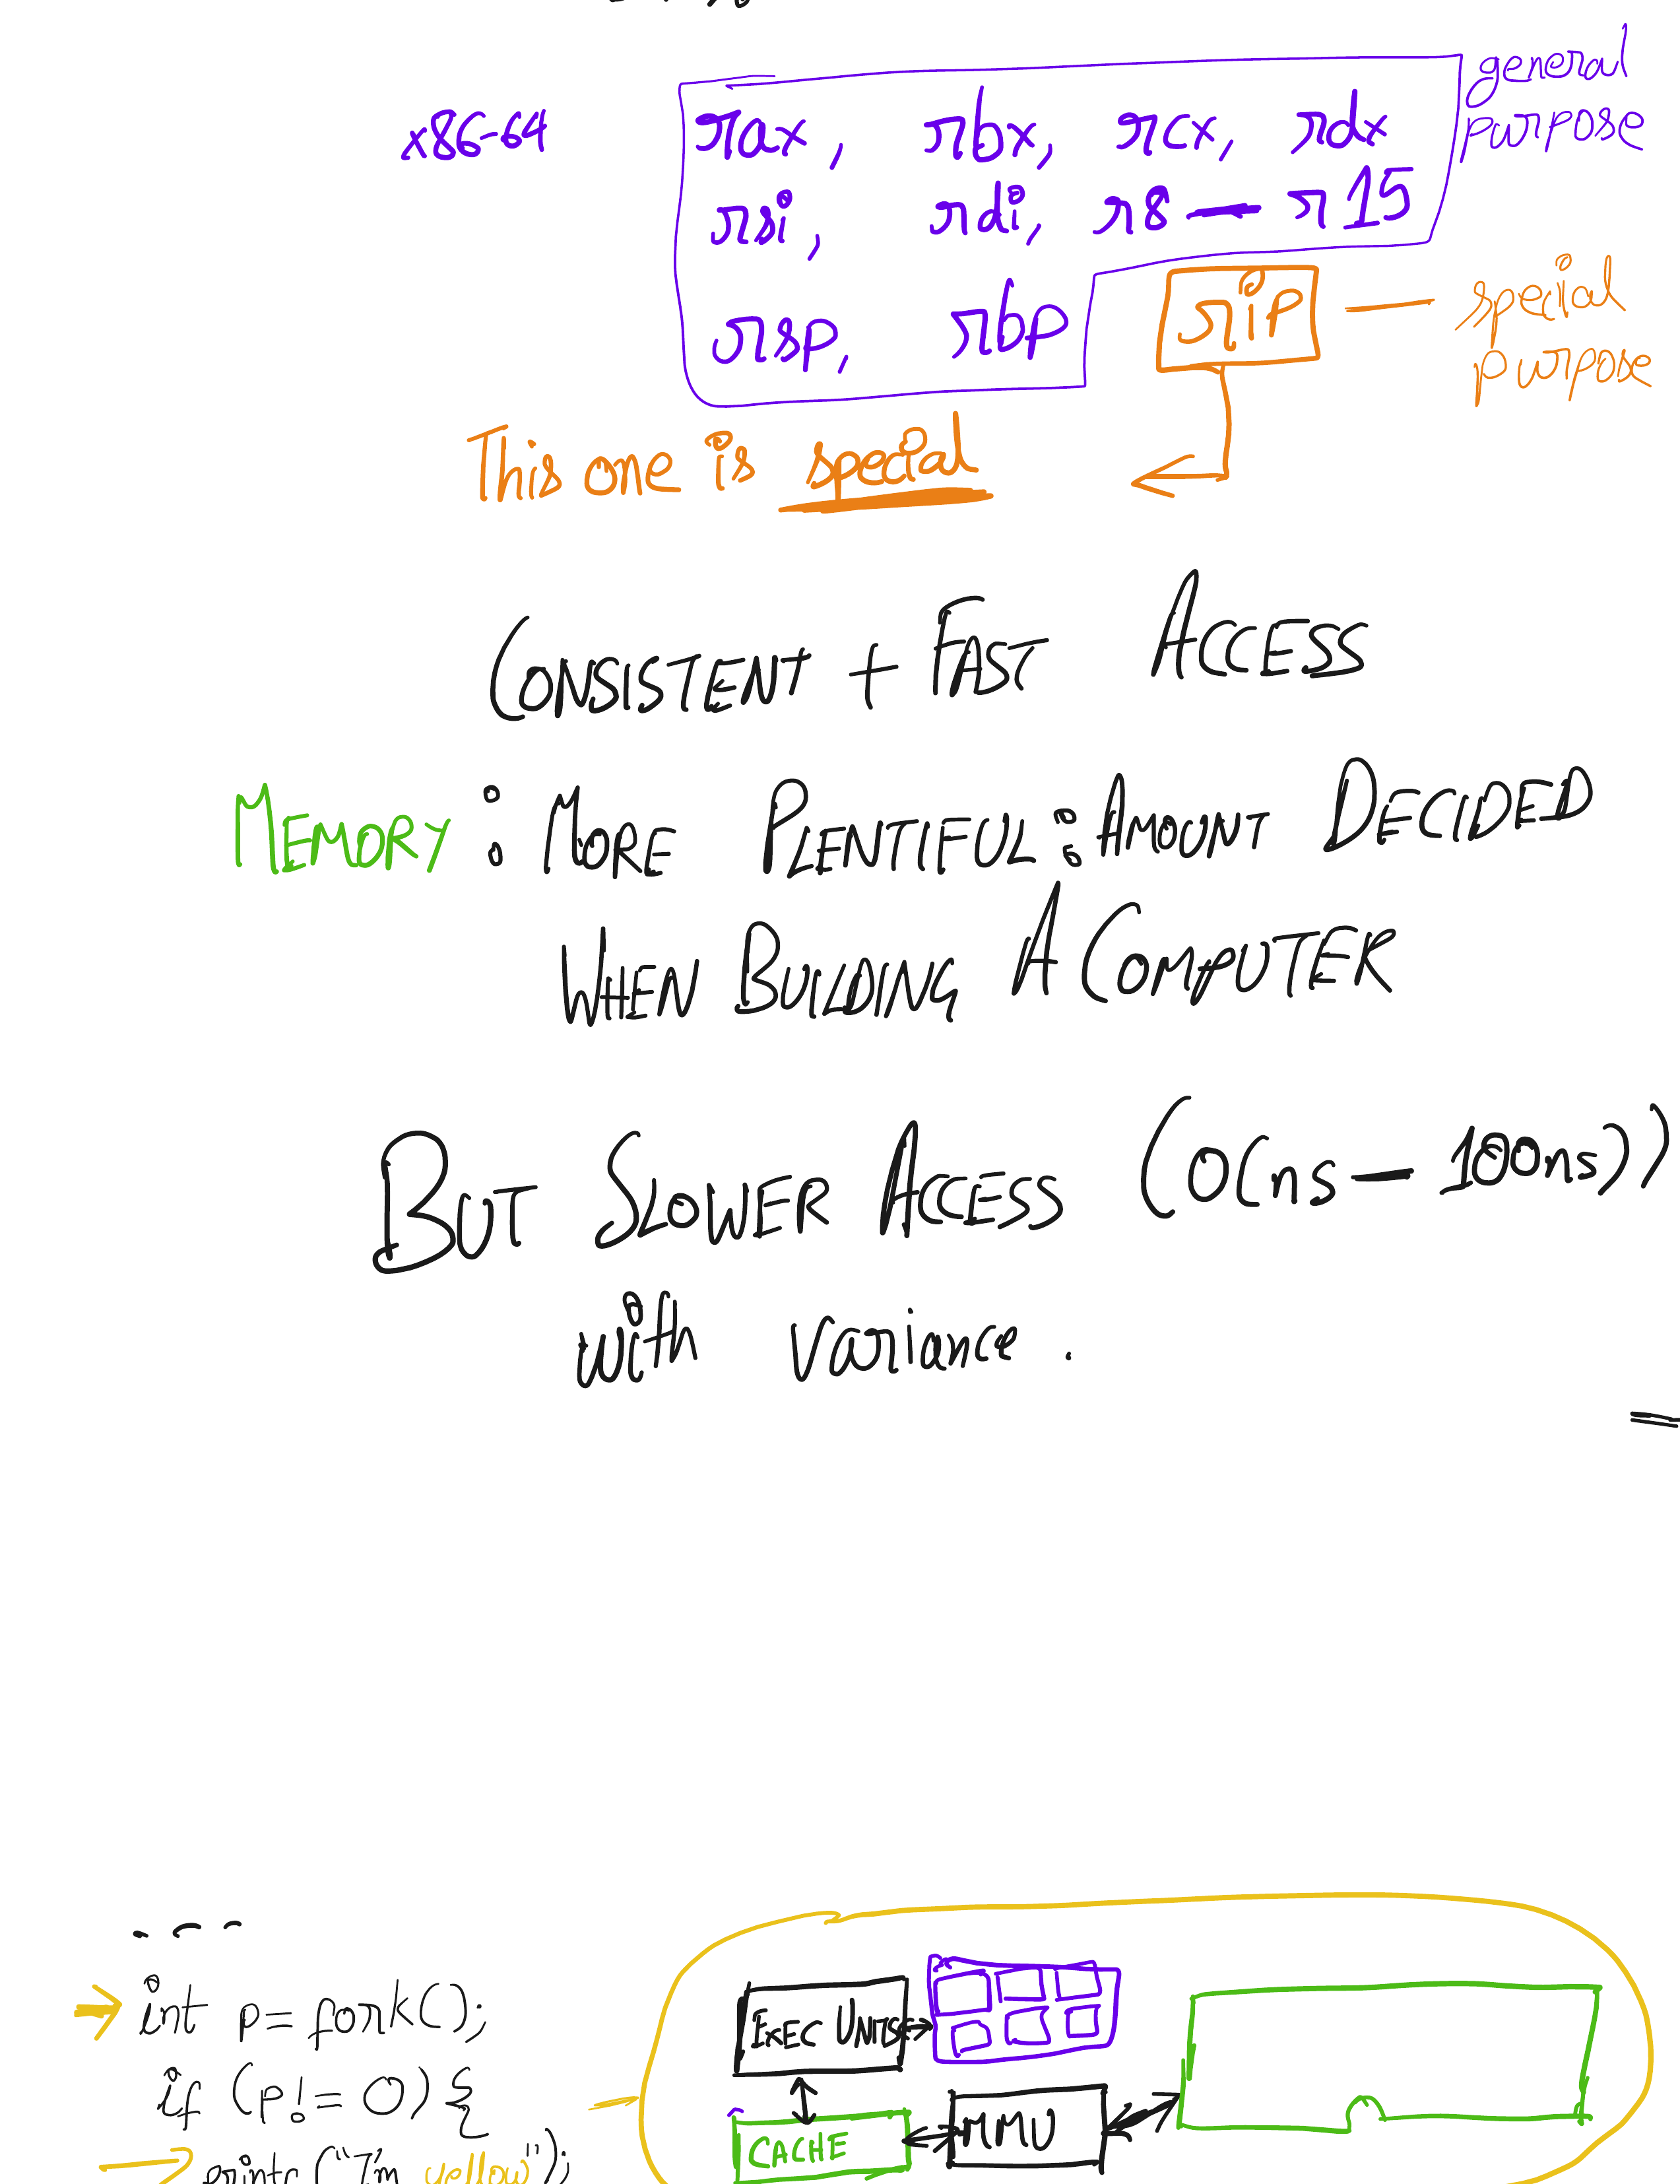 general
x86-64 rax, rbx, rcx, rdx purpose
rsi, rdi, r8 — r15
rsp, rbp rip — special
purpose
This one is special
CONSISTENT + FAST ACCESS
MEMORY : MORE PLENTIFUL : AMOUNT DECIDED
WHEN BUILDING A COMPUTER
BUT SLOWER ACCESS (O(ns — 100ns))
with variance.
---
int p = fork();
if (p != 0) {
("I'm yellow");
EXEC UNITS
CACHE
MMU